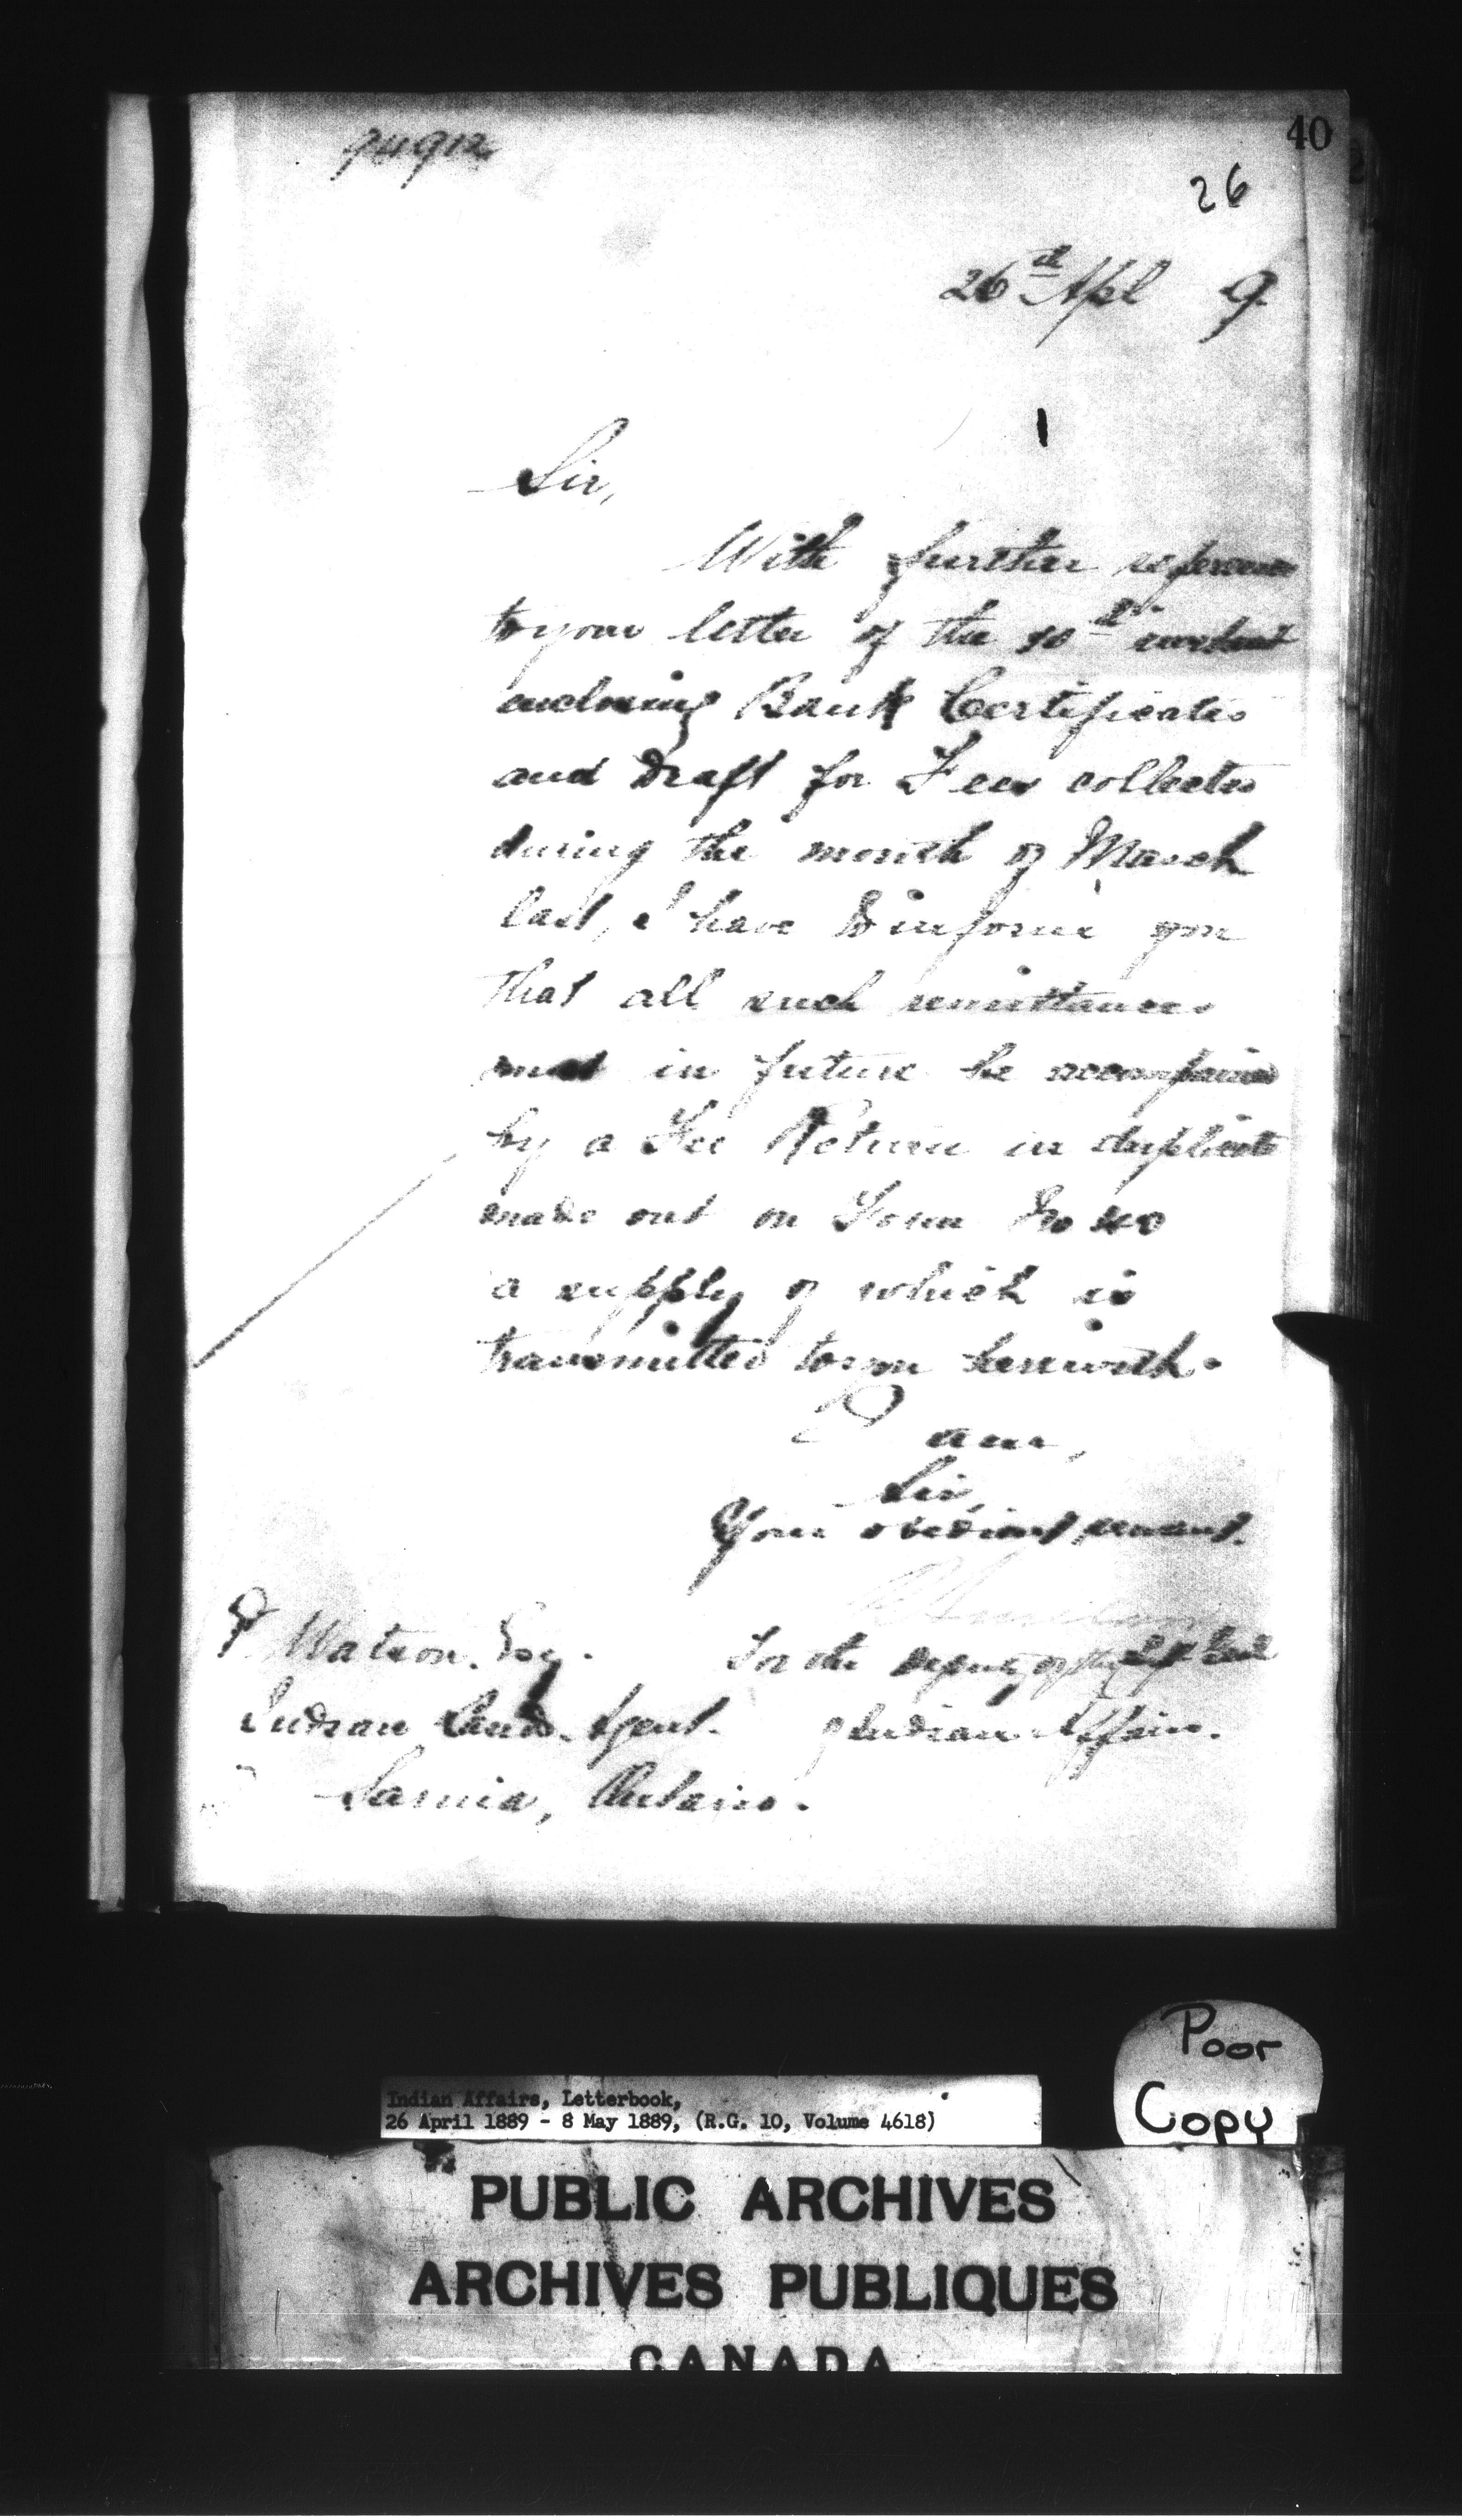 40
26
26th Apl 9
Sir,
With further reference
to your letter of the 10th instant
enclosing Bank Certificates
and Draft for Fees collected
during the month of March
last, I have to inform you
that all such remittances
must in future be accompanied
by a Fee Return in duplicate
made out on Form No
a supply of which is
transmitted to you herewith.
I am,
Sir,
Your obedient servant.
Watson. Esq.
For the Deputy of the Supt Genl
Indian Lands Agent.
of Indian Affairs.
Sarnia, Ontario.
Poor
Copy
Indian Affairs, Letterbook,
26 April 1889 - 8 May 1889, (R.G. 10, Volume 4618)
PUBLIC ARCHIVES
ARCHIVES PUBLIQUES
CANADA